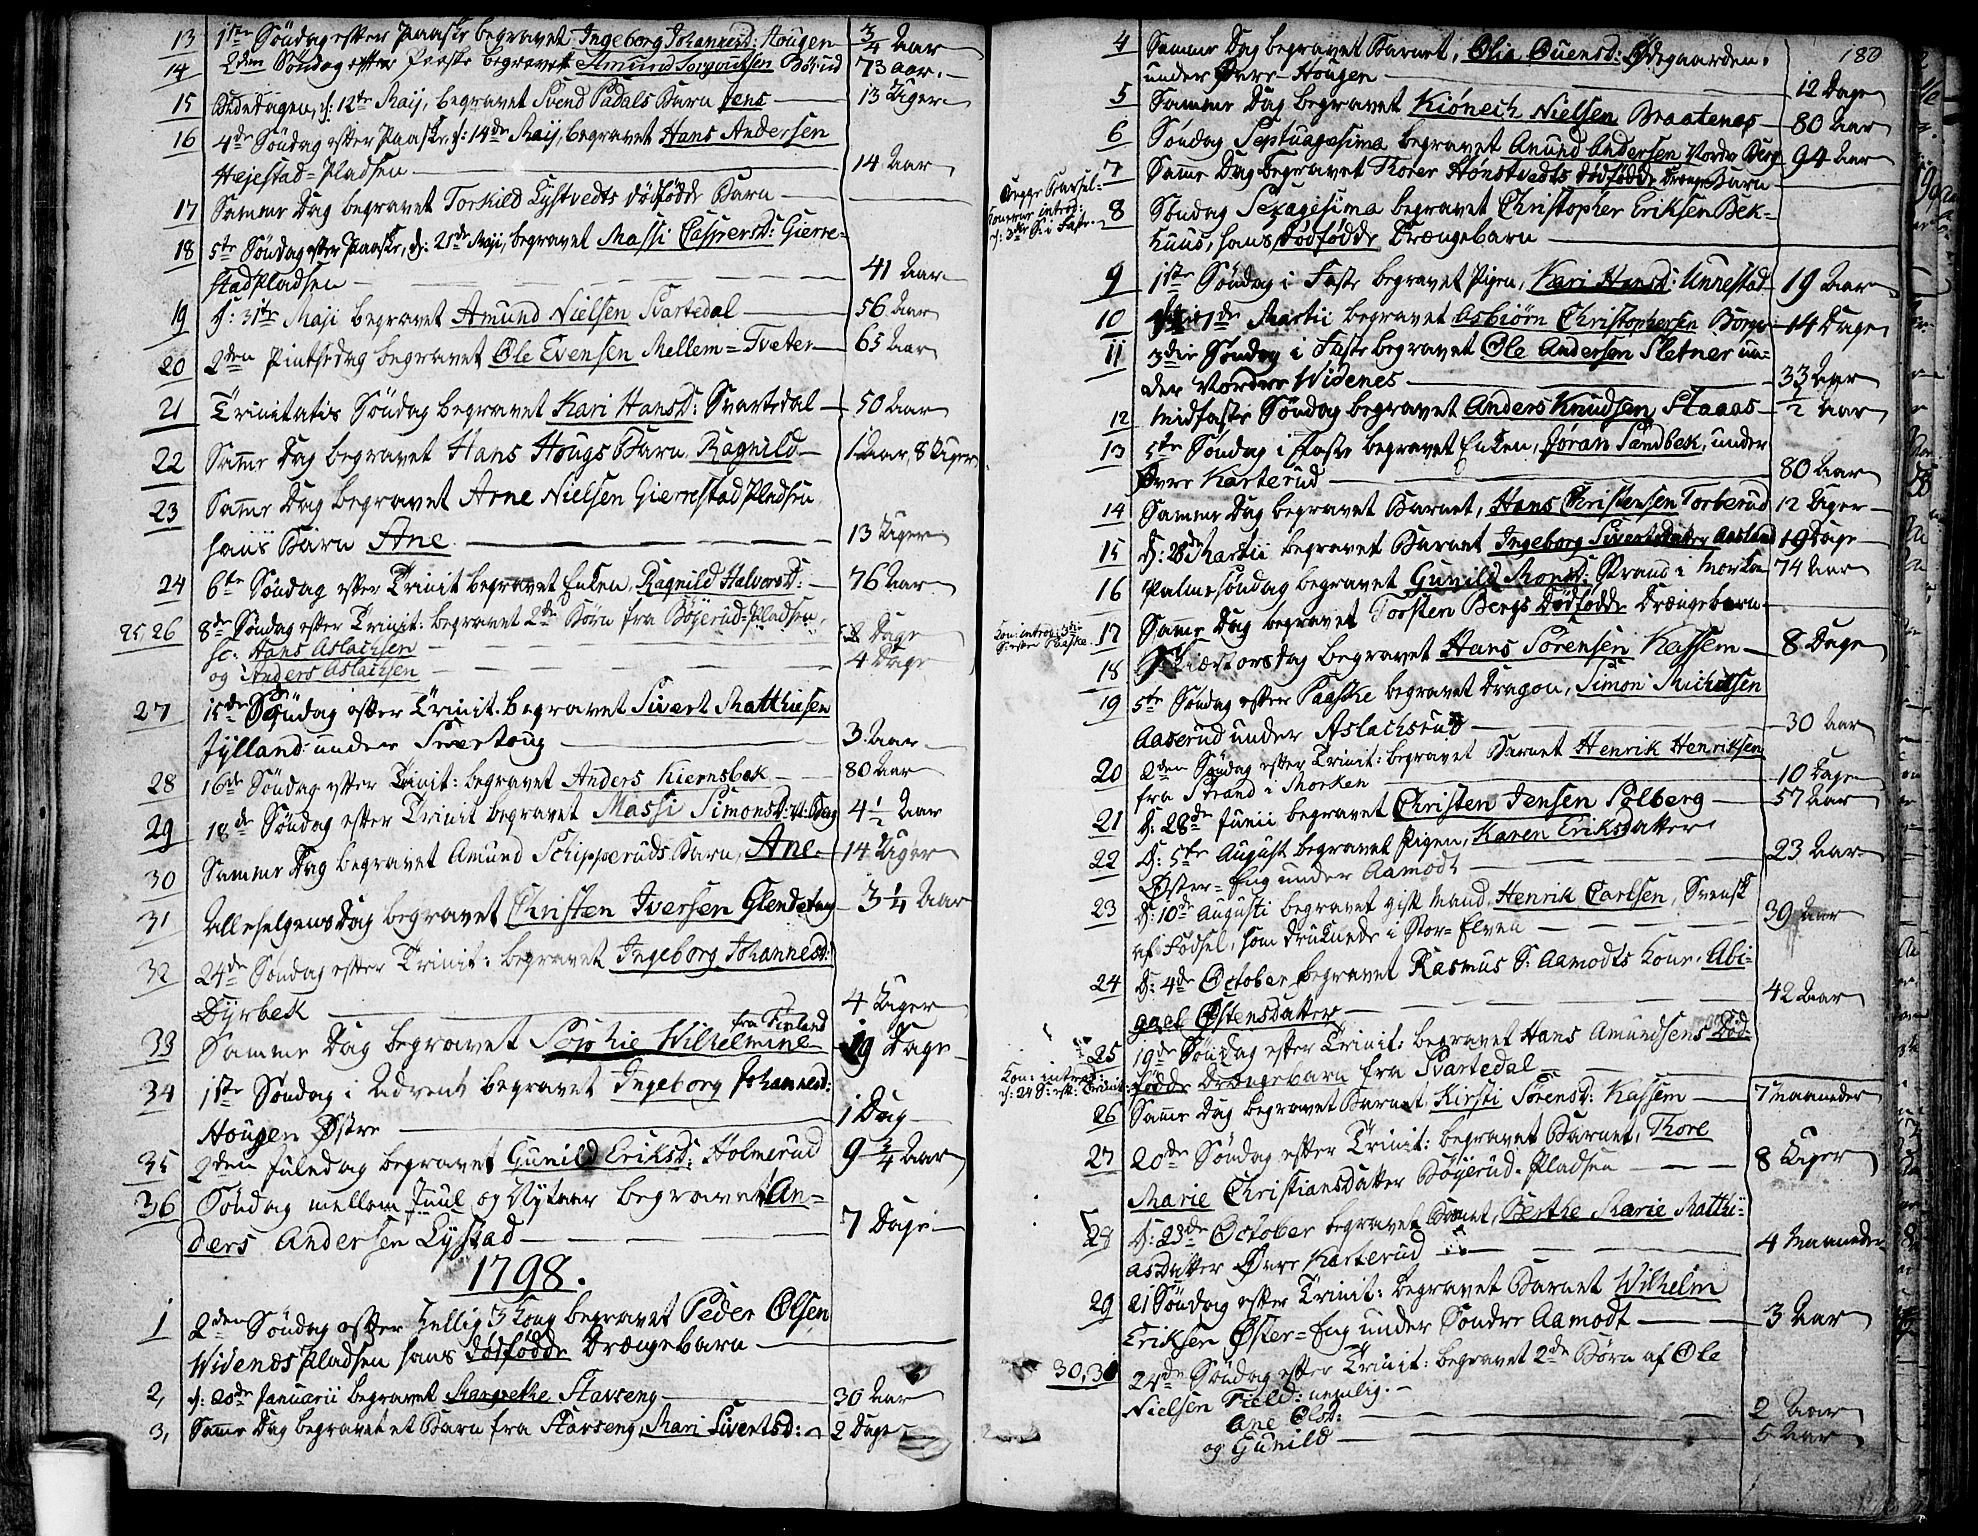 13 1ste Søndag efter Paaske begravet Ingeborg Johannesd: Hougen 3/4 Aar
14 2den Søndag efter Paaske begravet Amund Børud 73 Aar.
15 Bededagen, d: 12te Maij, begravet Svend Padals Barn Jens 13 Uger
16 4de Søndag efter Paaske, d: 14de Maij, begravet Hans Andersen
Hejestad-Pladsen 14 Aar
17 Samme Dag begravet Torkild Lystvedts dødfødde Barn
18 5te Søndag efter Paaske, d: 21de Maji, begravet Massi Caspersd: Gierre-
stadpladsen 41 Aar
19 d: 31te Maji begravet Amund Nielsen Svartedal 56 Aar
20 2den Pintsedag begravet Ole Evensen Mellem-Tveter 65 Aar
21 Trinitatis Søndag begravet Kari Hansd: Svartedal 50 Aar
22 Samme Dag begravet Hans Hougs Barn Ragnild 1 Aar, 8 Uger
23 Samme Dag begravet Arne Nielsen Gierrestad Pladsen
hans Barn Ane 13 Uger
24 6te Søndag efter Trinit begravet Enken Ragnild Halvorsd: 76 Aar
25,26 8de Søndag efter Trinit: begravet 2de Børn fra Böjerud-Pladsen,
sc: Hans Aslachsen Dage
og Anders Aslachsen 4 Dage
27 15de Søndag efter Trinit. begravet Sivert Matthiesen
Jylland under Svertoug 3 Aar
28 16de Søndag efter Trinit: begravet Anders Kiernsbek 80 Aar
29 18de Søndag efter Trinit begravet Massi Simonsd: 4 1/2 Aar
30 Samme Dag begravet Amund Schipperuds Barn, Ane 14 Uger
31 Allehelgens Dag begravet Christen Iversen Glendetang 3 1/4 Aar
32 24de Søndag efter Trinit: begravet Ingeborg Johannesd:
Dyrbek 4 Uger
fra Finland
33 Samme Dag begravet Sophie Wilhelmine 19 Dage
34 1ste Søndag i Advent begravet Ingeborg Johannesd:
Hougen Østre 1 Dag
35 2den Juledag begravet Gunild Eriksd: Holmerud 9 3/4 Aar
36 Søndag mellem Juul og Nytaar begravet An-
ders Andersen Lystad 7 Dage
1798.
1 2den Søndag efter Hellig 3 Kong begravet Peder Olsen
Widenes pladsen hans dødfødde Drængebarn
2, d: 20de Januarii begravet Margrethe Stavseng 30 Aar
3, Samme Dag begravet et Barn fra Stavseng, Mari Sivertsd: 2 Dage
180
4 Samme Dag begravet Barnet, Olia Ouensd: Ødegaarden.
under Øvre-Hougen 12 Dage
5 Samme Dag begravet Kiønech Nielsen Braatenes 80 Aar
6 Søndag Septuagesima begravet Amund Andersen Vordre Berg 94 Aar
7 Samme Dag begravet Thorer Hønstvedts dødfødde Drænge Barn
Begge Barsel-
Konerne introd:
d: 3die S: i Faste
8 Søndag Sexagesima begravet Christopher Eriksen Bek-
huus, hans dødfødde Drængebarn
9 1ste Søndag i Faste begravet Pigen, Kari Hansd: Unnestad 19 Aar
10 1de Martii begravet Asbiörn Christophersen Borger 14 Dage
11 3die Søndag i Faste begravet Ole Andersen Sletner un-
der Vordre Widenes 33 Aar
12 Midfaste Søndag begravet Anders Knudsen Staaas 1/2 Aar
13 5te Søndag i Faste begravet Enken, Jøran Sandbek, under
Øvre Karterud 80 Aar
14 Samme Dag begravet Barnet, Hans Christensen Torberud 12 Uger
15 d: 28de Martii begravet Barnet Ingeborg Sivertsdatter Aasland 19 Dage
16 Palmesøndag begravet Gunild Monsd: Strand i Morken 74 Aar
Kon: introd: 3die
S: efter Paaske.
17 Samme Dag begravet Torsten Bergs Dødfødde Drængebarn
18 Skiærtorsdag begravet Hans Sörensen Kassem 8 Dage
19 5te Søndag efter Paaske begravet Dragon, Simon Michelsen
Aaserud under Aslachsrud 30 Aar
20 2den Søndag efter Trinit: begravet Barnet Henrik Henriksen
fra Strand i Morken 10 Dage
21 d: 28de Junii begravet Christen Jensen Solberg 57 Aar
22 d: 5te August begravet Pigen, Karen Eriksdatter
Øster-Eng under Aamodt 23 Aar
23 d: 10de Augusti begravet gift Mand, Henrik Carlsen, Svensk
af Fødsel, som druknede i Stor-Elven 39 Aar
24 d: 4de October begravet Rasmus S: Aamodts Kone, Abi-
gael Østensdatter 42 Aar
25 19de Søndag efter Trinit: begravet Hans Amundsens Død-
fødde Drængebarn fra Svartedal
Kon: introd:
d: 24 S: eft: Trinit:
26 Samme Dag begravet Barnet Kirsti Sørensd: Kassem 7 Maaneder
27 20de Søndag efter Trinit: begravet Barnet, Thore
Marie Christiansdatter Böyerud-Pladsen 8 Uger
28 d: 23de October begravet Barnet, Berthe Marie Matthi-
asdatter Øvre Karterud 4 Maaneder
29 21 Søndag efter Trinit: begravet Barnet Wilhelm
Eriksen Øster-Eng under Søndre Aamodt 3 Aar
30,31 24de Søndag efter Trinit: begravet 2de Børn af Ole
Nielsen Field: nemlig.
Ane Olsd: 2 Aar
og Gunild 5 Aar